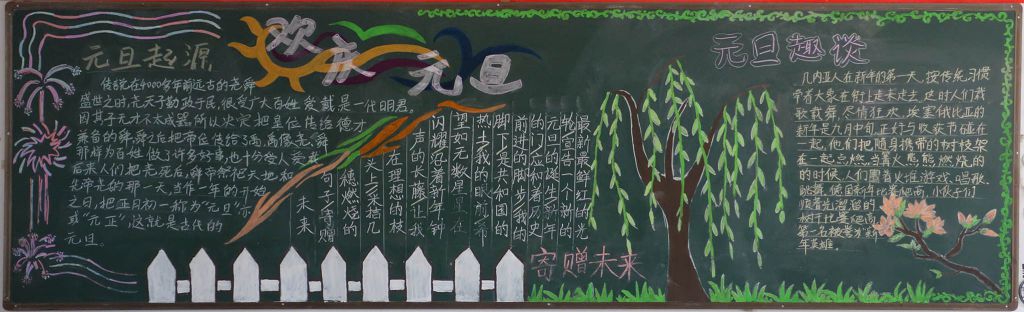 欢庆元旦
元旦起源
传说在4000多年前远古的尧舜
盛世之时,尧天子勤政于民,很受广大百姓爱戴是一代明君。
因其子无才不太成器,所以决定把皇位传给德才
兼备的舜,舜
那样为百姓做了许多好事,也十分给人爱戴
后来人们把尧死后,舜帝祭祀天地和
先帝尧的那一天,当作一年的开始
之日,把正月初一称为"元旦",亦
或"元正",这就是古代的
元旦。
最新最鲜红的光
轮宣告一个新的
元旦的诞生新年
的门应和着历史
前进的脚步我的
脚下是共和国的
热土我的眼前希
望如元数星星在
闪耀沿着新年钟
声的长藤让我
在理想的枝
头上采桔几
穗燃烧的
句子寄赠
未来
寄赠未来
元旦趣谈
几内亚人在新年的第一天,按传统习惯
带着大象在街上走来走去,这时人们载
歌载舞,尽情狂欢。埃塞俄比亚的
新年是九月中旬,正好与收获节碰在
一起,他们把随身携带的树枝架
在一起点燃,当篝火熊熊燃烧的
的时候,人们围着火堆游戏、唱歌、
跳舞。德国新年比赛爬树,小伙子们
顺着光溜溜的
树干比赛爬高
第一名被誉为新
年英雄。